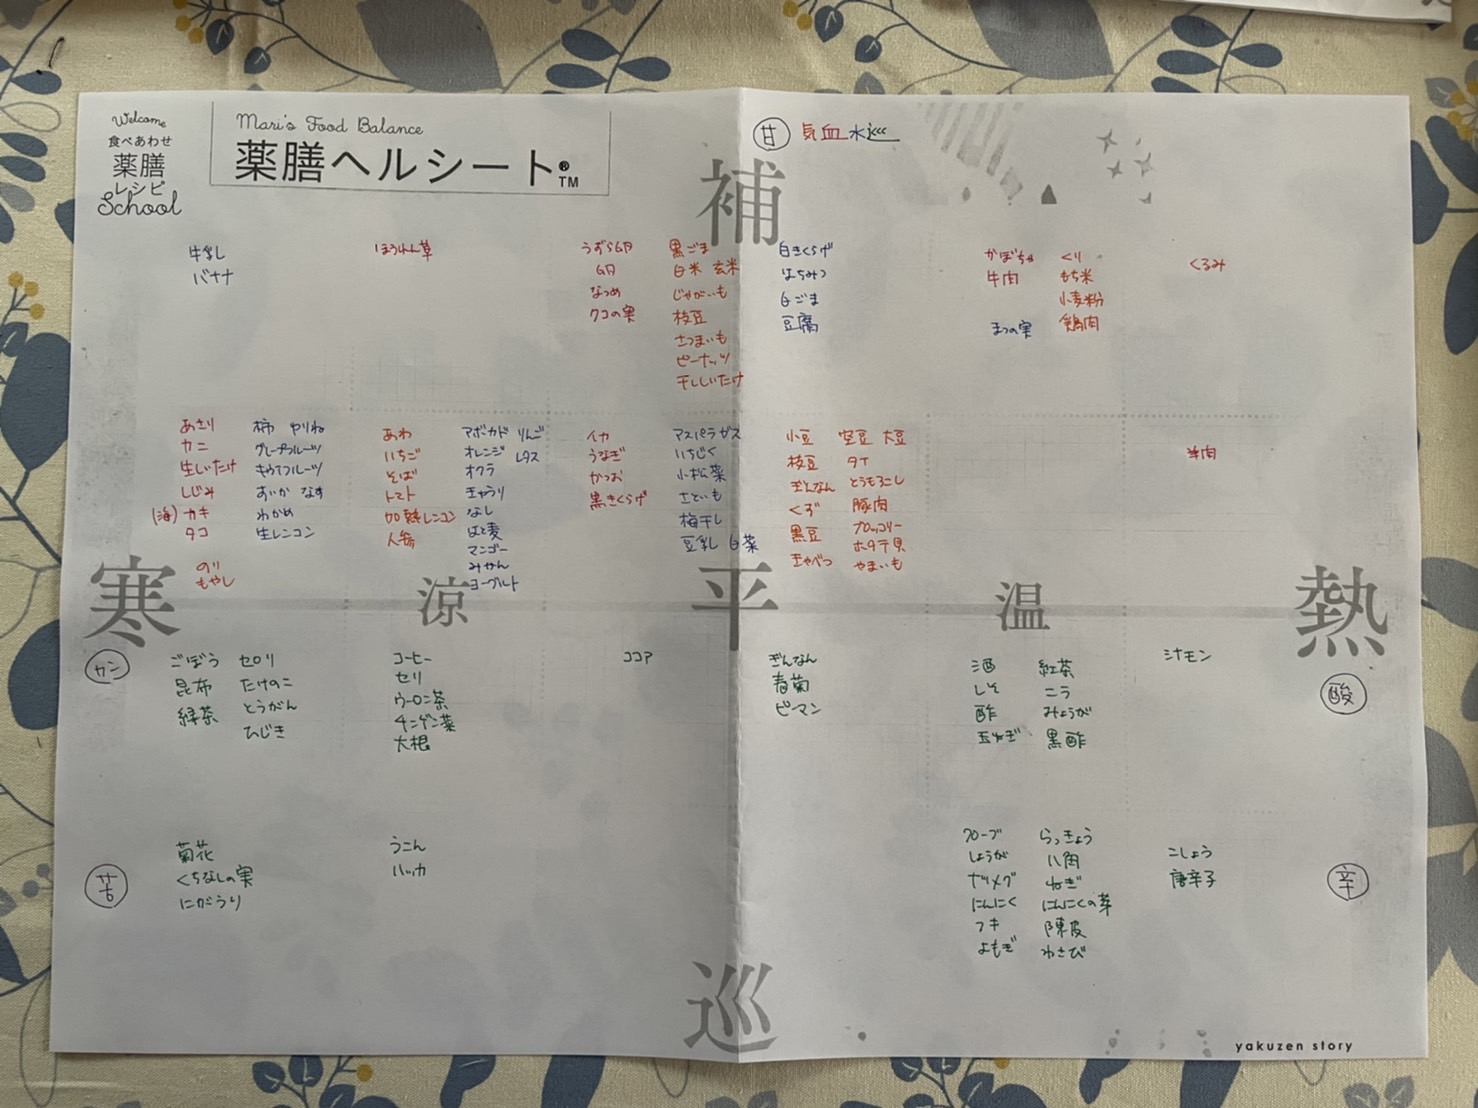 Welcome
食べあわせ
薬膳
レシピ
School
Mari's Food Balance
薬膳ヘルシート®
TM
甘 気血水巡
補
牛乳
バナナ
ほうれん草
うずら卵
卵
なつめ
クコの実
黒ごま
白米 玄米
じゃがいも
枝豆
さつまいも
ピーナッツ
干ししいたけ
白きくらげ
はちみつ
白ごま
豆腐
かぼちゃ
牛肉
まつの実
くり
もち米
小麦粉
鶏肉
くるみ
あさり
カニ
生しいたけ
しじみ
(海) カキ
タコ
のり
もやし
柿 ゆりね
グレープフルーツ
キウイフルーツ
すいか なす
わかめ
生レンコン
あわ
いちご
そば
トマト
加熱レンコン
人参
アボカド りんご
オレンジ レタス
オクラ
きゅうり
なし
はと麦
マンゴー
みかん
ヨーグルト
イカ
うなぎ
かつお
黒きくらげ
アスパラガス
いちじく
小松菜
さといも
梅干し
豆乳 白菜
小豆
枝豆
ぎんなん
くず
黒豆
きゃべつ
空豆 大豆
タイ
とうもろこし
豚肉
ブロッコリー
ホタテ貝
やまいも
羊肉
寒
涼
平
温
熱
カン
ごぼう
昆布
緑茶
セロリ
たけのこ
とうがん
ひじき
コーヒー
セリ
ウーロン茶
チンゲン菜
大根
ココア
ぎんなん
春菊
ピーマン
酒
しそ
酢
玉ねぎ
紅茶
ニラ
みょうが
黒酢
シナモン
酸
苦
菊花
くちなしの実
にがうり
うこん
ハッカ
クローブ
しょうが
ナツメグ
にんにく
フキ
よもぎ
らっきょう
八角
ねぎ
にんにくの芽
陳皮
わさび
こしょう
唐辛子
辛
巡
yakuzen story